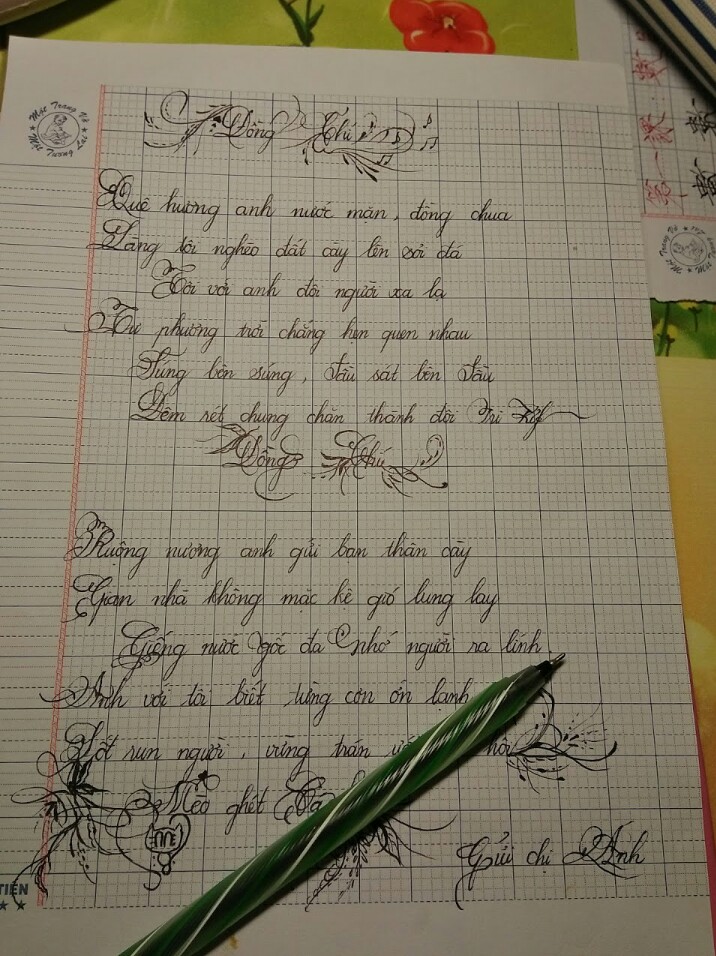 Một Trang Vở
Đồng Chí
Quê hương anh nước mặn, đồng chua
Làng tôi nghèo đất cày lên sỏi đá
Tôi với anh đôi người xa lạ
Tự phương trời chẳng hẹn quen nhau
Súng bên súng, đầu sát bên đầu
Đêm rét chung chăn thành đôi tri kỷ
Đồng Chí
Ruộng nương anh gửi bạn thân cày
Gian nhà không mặc kệ gió lung lay
Giếng nước gốc đa nhớ người ra lính.
Anh với tôi biết từng cơn ớn lạnh
Sốt run người, vừng trán hôi
Mèo ghét
Gửi chị Ánh
TIÊN
第一